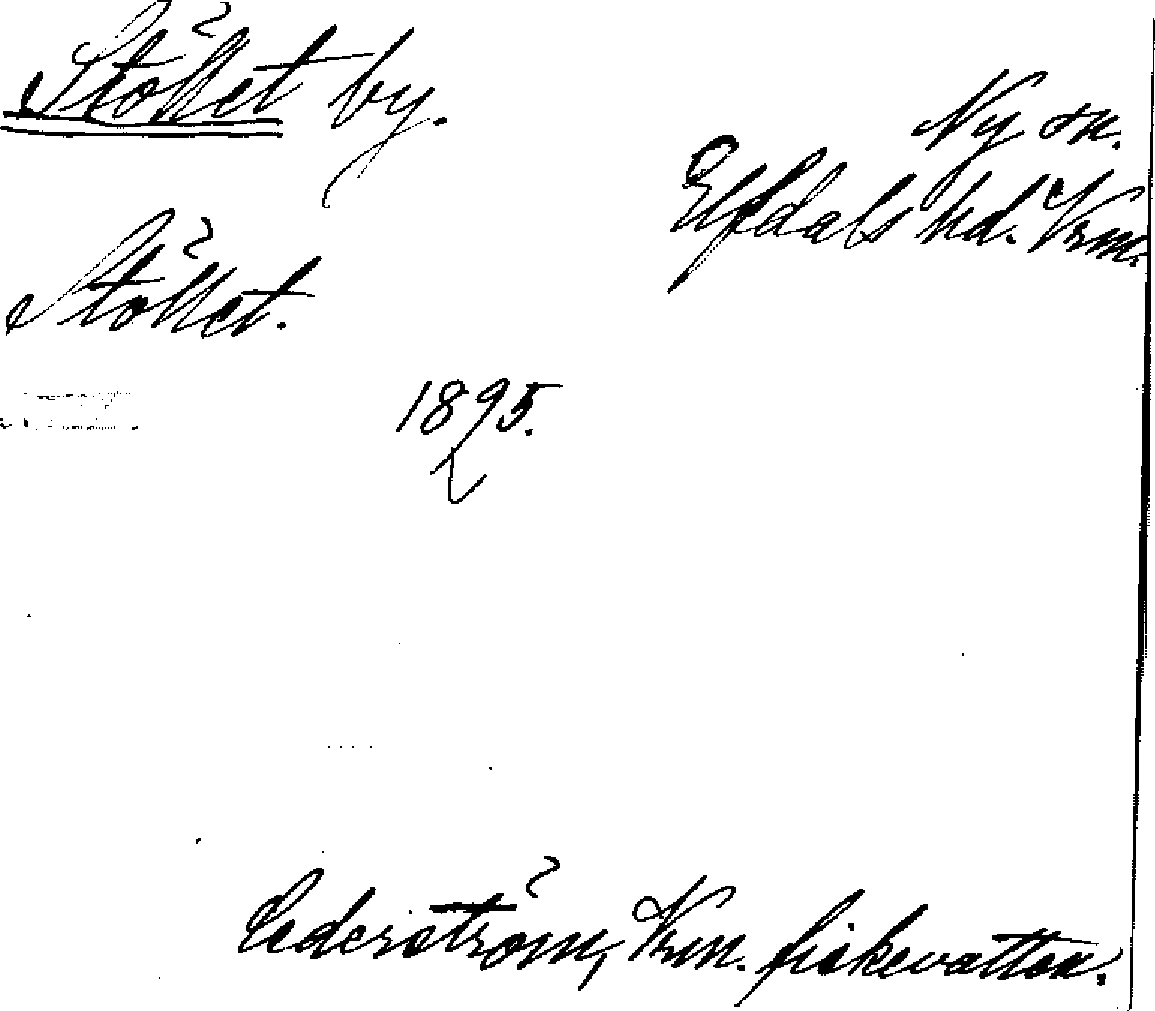 Stöllet by.
Ny sn.
Elfdals hd. Vrm.
Stöllet.
1895.
Cederström, Vrm. fiskevatten.